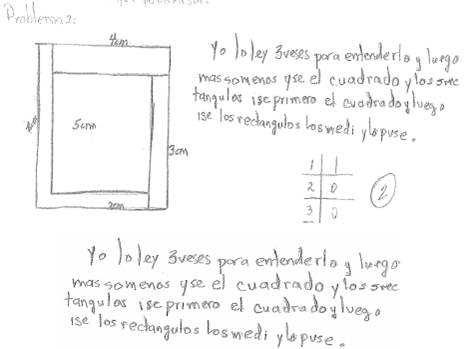 Problema 2:
4cm
Yo lo ley 3veses para entenderlo y luego
mas somenos yse el cuadrado y los rec
tangulos ise primero el cuadrado y luego
ise los rectangulos los medi y lo puse.
5cm
3cm
2cm
1 1
2 0
3 0
2
Yo lo ley 3veses para entenderlo y luego
mas somenos yse el cuadrado y los rec
tangulos ise primero el cuadrado y luego
ise los rectangulos los medi y lo puse.